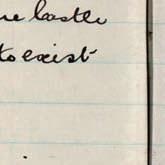 castle
to exist